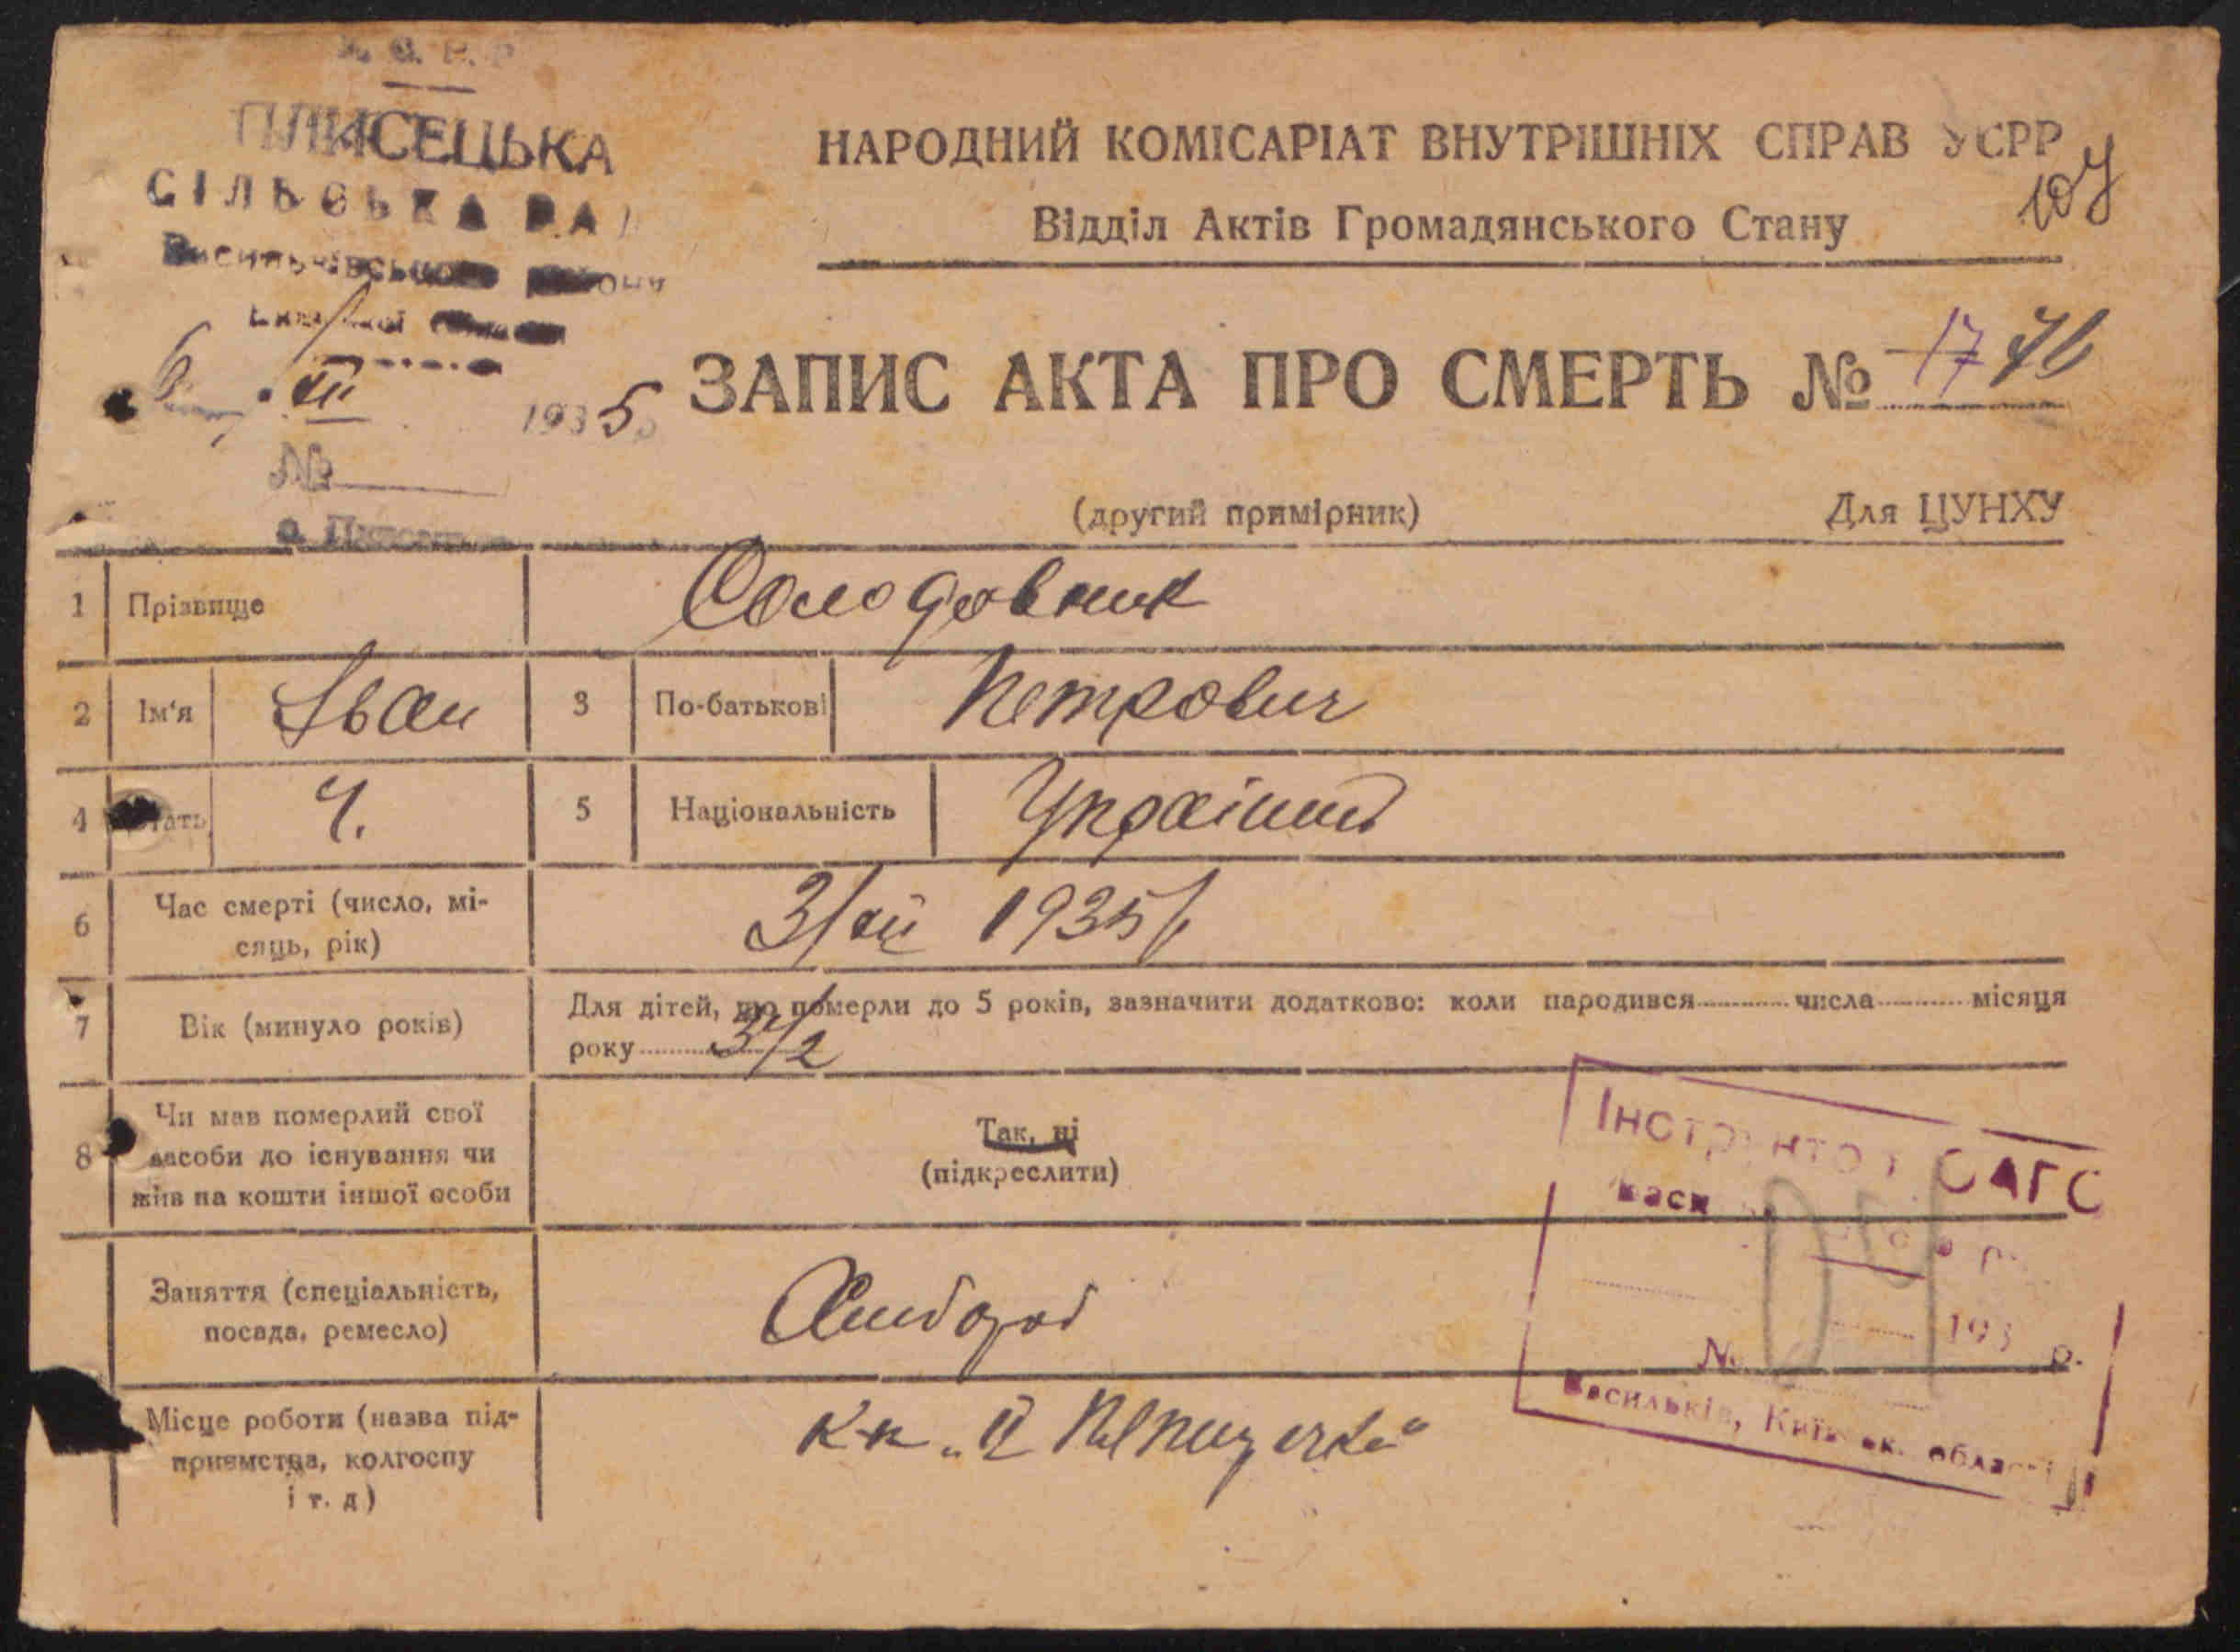 У. С. Р. Р.
ПЛИСЕЦЬКА
СІЛЬСЬКА РА
Васильківського району
Київської області
6 . XII 1935
№
с. Плисецьке
НАРОДНИЙ КОМІСАРІАТ ВНУТРІШНІХ СПРАВ УСРР
Відділ Актів Громадянського Стану
107
ЗАПИС АКТА ПРО СМЕРТЬ № 17 76
(другий примірник)
Для ЦУНХУ
1 Прізвище Солодовник
2 Ім'я Іван 3 По-батькові Петрович
4 Стать Ч. 5 Національність Україн
6 Час смерті (число, мі-
сяць, рік) 3/XII 1935
7 Вік (минуло років) Для дітей, що померли до 5 років, зазначити додатково: коли народився числа місяця
року 3 1/2
8 Чи мав померлий свої
засоби до існування чи
жив на кошти іншої особи
Так, ні
(підкреслити)
Заняття (спеціальність,
посада, ремесло) Хлібороб
Місце роботи (назва під-
приємства, колгоспу
і т. д)
к-п „II П'ятирічка"
Інструктор САГС
Васи
193 р.
№
Васильків, Київськ. області